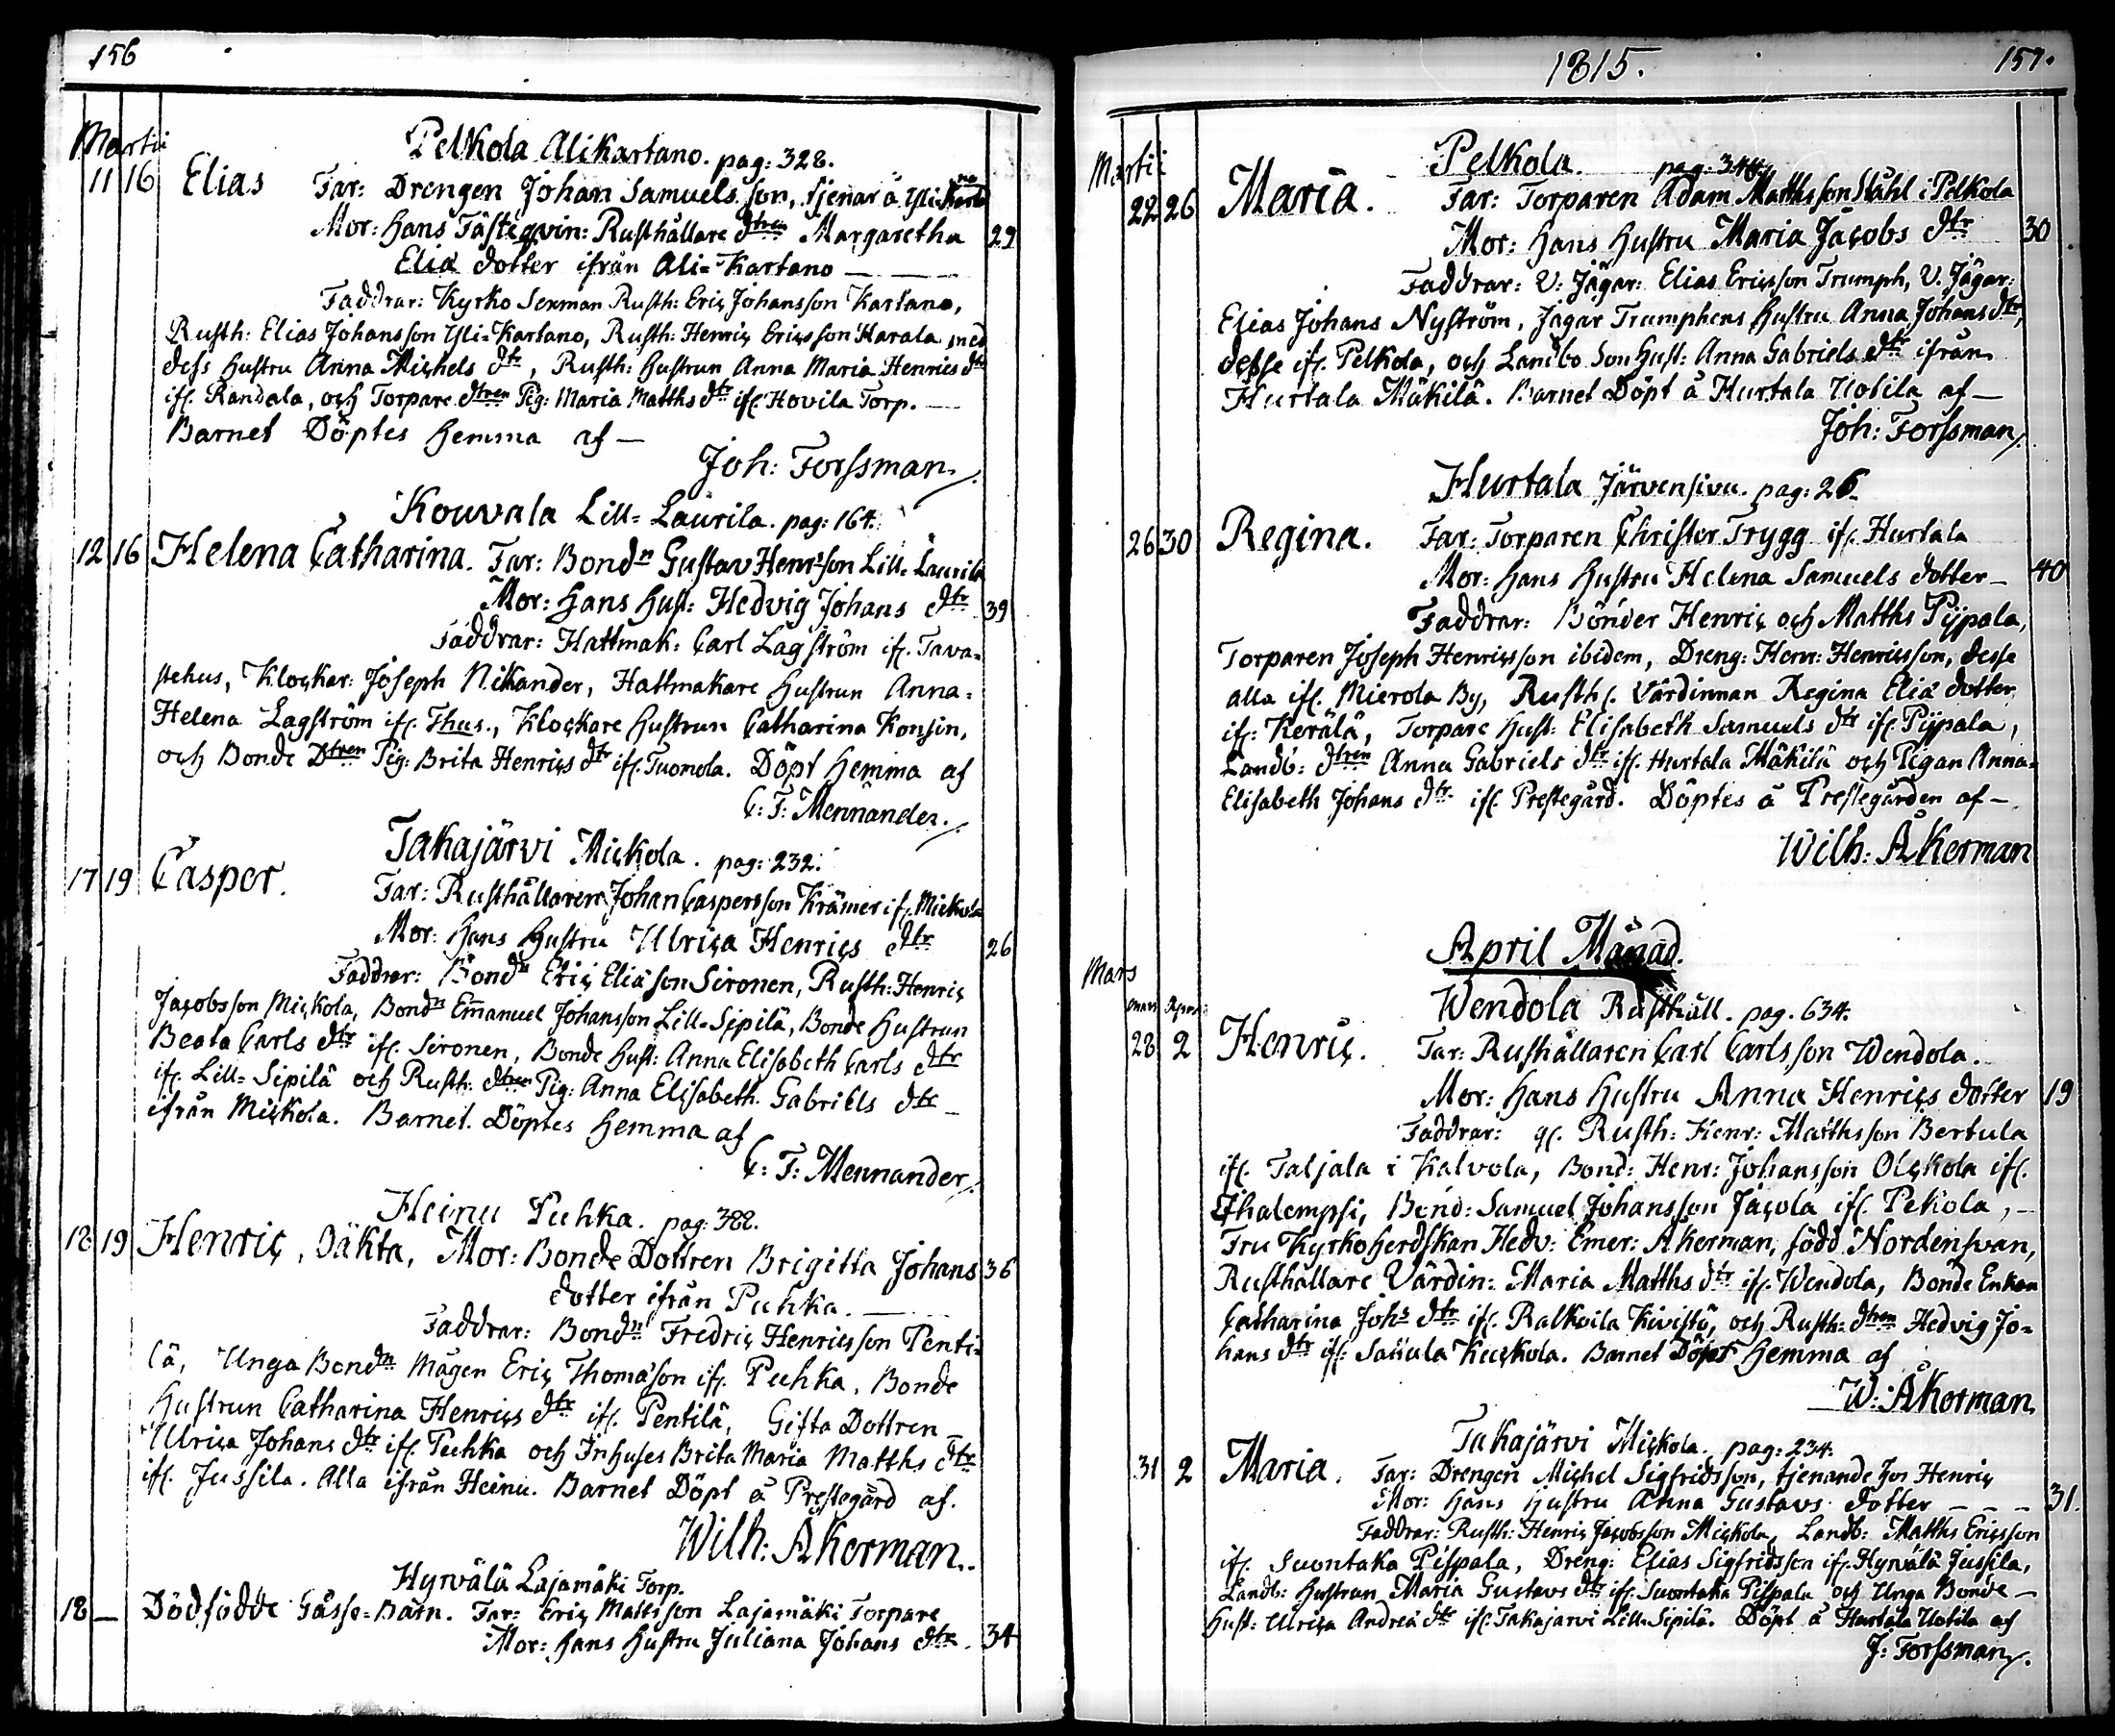 156
Martii
Pelkola Alikartano. pag: 328.
11 16 Elias Far: Drengen Johan Samuels son, tjenar å Yli-Kartano
Mor: Hans Fästeqvin: Rusthållare dtren Margaretha 29
Eliä dotter ifrån Ali-Kartano —
Faddrar: Kyrko Sexman Rusth: Eric Johansson Kartano,
Rusth: Elias Johansson Yli-Kartano, Rusth: Henric Ericsson Harala med
dess Hustru Anna Michels dtr, Rusth: Hustrun Anna Maria Henrics dtr
ifr. Randala, och Torpare dtren Pig: Maria Matths dtr ifr. Hovila Torp. —
Barnet Döptes hemma af —
Joh: Forssman.
Kouvala Lill-Laurila. pag: 164.
12 16 Helena Catharina. Far: Bondn Gustav Henr:son Lill-Laurila
Mor: Hans Hust: Hedvig Johans dtr 39
Faddrar: Hattmak: Carl Lagström ifr. Tava-
stehus, Klockar: Joseph Nikander, Hattmakare Hustrun Anna-
Helena Lagström ifr. Thus., Klockare Hustrun Catharina Konsin,
och Bonde Dtren Pig: Brita Henrics dtr ifr. Tuomola. Döpt hemma af
C: F: Mennander.
Takajärvi Mickola. pag: 232.
17 19 Casper. Far: Rusthållaren Johan Caspersson Krämer ifr. Mickola
Mor: Hans Hustru Ulrica Henrics dtr 26
Faddrar: Bondn Eric Eliä son Sironen, Rusth: Henric
Jacobsson Mickola, Bondn Emanuel Johansson Lill-Sipilä, Bonde Hustrun
Beata Carls dtr ifr. Sironen, Bonde Hust: Anna Elisabeth Carls dtr
ifr. Lill-Sipilä och Rusth: dtren Pig: Anna Elisabeth Gabriels dtr —
ifrån Mickola. Barnet Döptes hemma af
C: F: Mennander
Heinu Puhka. pag: 388.
18 19 Henric, Oäkta, Mor: Bonde Dottren Brigitta Johans 36
dotter ifrån Puhka. —
Faddrar: Bondn Fredric Henricsson Penti-
lä, Unga Bondn Mågen Eric Thomäson ifr. Puhka, Bonde
Hustrun Catharina Henrics dtr ifr. Pentilä, Gifta Dottren
Ulrica Johans dtr ifr. Puhka och Inhuses Brita Maria Matths dtr
ifr. Jussila. Alla ifrån Heinu. Barnet Döpt å Prestegård af.
Wilh: Åkerman.
Hyrvälä Lajamäki Torp.
18 — Dödfödde Gåsse-Barn. Far: Eric Mattsson Lajamäki Torpare
Mor: Hans Hustru Juliana Johans dtr. 34
1815. 157.
Martii
Pelkola. pag: 344.
22 26 Maria. Far: Torparen Adam Mattsson Ståhl i Pelkola
Mor: Hans Hustru Maria Jacobs dtr 30
Faddrar: V: Jägar: Elias Ericsson Trumph, V. Jägar:
Elias Johans Nyström, Jägar Trumphens Hustru Anna Johans dtr,
desse ifr. Pelkola, och Landbo Son Hust: Anna Gabriels dtr ifrån
Hurtala Mäkilä. Barnet Döpt å Hurtala Uotila af —
Joh: Forssman
Hurtala Järvensivu. pag: 26.
26 30 Regina. Far: Torparen Christer Trygg ifr. Hurtala
Mor: Hans Hustru Helena Samuels dotter — 40
Faddrar: Bönder Henric och Matths Pijpala,
Torparen Joseph Henricsson ibidem, Dreng: Henr: Henricsson, desse
alla ifr. Mierola By, Rusth. Värdinnan Regina Eliä dotter
ifr. Kerälä, Torpare Hust: Elisabeth Samuels dtr ifr. Pijpala,
Landb: dtren Anna Gabriels dtr ifr. Hurtala Mäkilä och Pigan Anna-
Elisabeth Johans dtr ifr. Prestegård. Döptes å Prestegården af —
Wilh: Åkerman
April Månad.
Mars
Mars April
Wendola Rusthåll. pag. 634.
28 2 Henric. Far: Rusthållaren Carl Carlsson Wendola.
Mor: Hans Hustru Anna Henrics dotter 19
Faddrar: gf. Rusth: Henr: Matthsson Bertula
ifr. Taljala i Kalvola, Bond: Henr: Johansson Olckola ifr.
Ihalempsi, Bond: Samuel Johansson Jacola ifr. Pekola, —
Fru Kyrkoherdskan Hedv: Emer: Åkerman, född Nordensvan,
Rusthållare Värdin: Maria Matths dtr ifr. Wendola, Bonde Enkan
Catharina Johs dtr ifr. Ralkoila Kivistö, och Rusth: dtren Hedvig Jo-
hans dtr ifr. Sauula Kuckola. Barnet Döpt hemma af
W: Åkerman
Takajärvi Mickola. pag: 234.
31 2 Maria. Far: Drengen Michel Sigfridsson, tjenande hos Henric
Mor: Hans Hustru Anna Gustavs dotter — — — 31.
Faddrar: Rusth: Henric Jacobsson Mickola, Landb: Matths Ericsson
ifr. Suontaka Pispala, Dreng: Elias Sigfridsson ifr. Hyrvälä Jussila,
Landb: Hustrun Maria Gustavs dtr ifr. Suontaka Pispala och Unga Bonde —
Hust: Ulrica Andreä dtr ifr. Takajärvi Lill-Sipilä. Döpt å Hurtala Uotila af
J: Forssman.